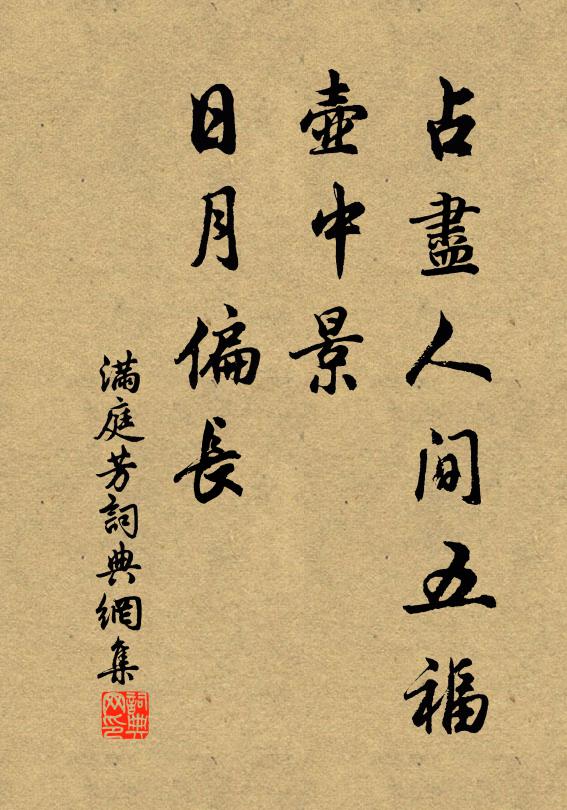 占盡人间五福
壺中景
日月偏長
滿庭芳詞典網集
詞典网印